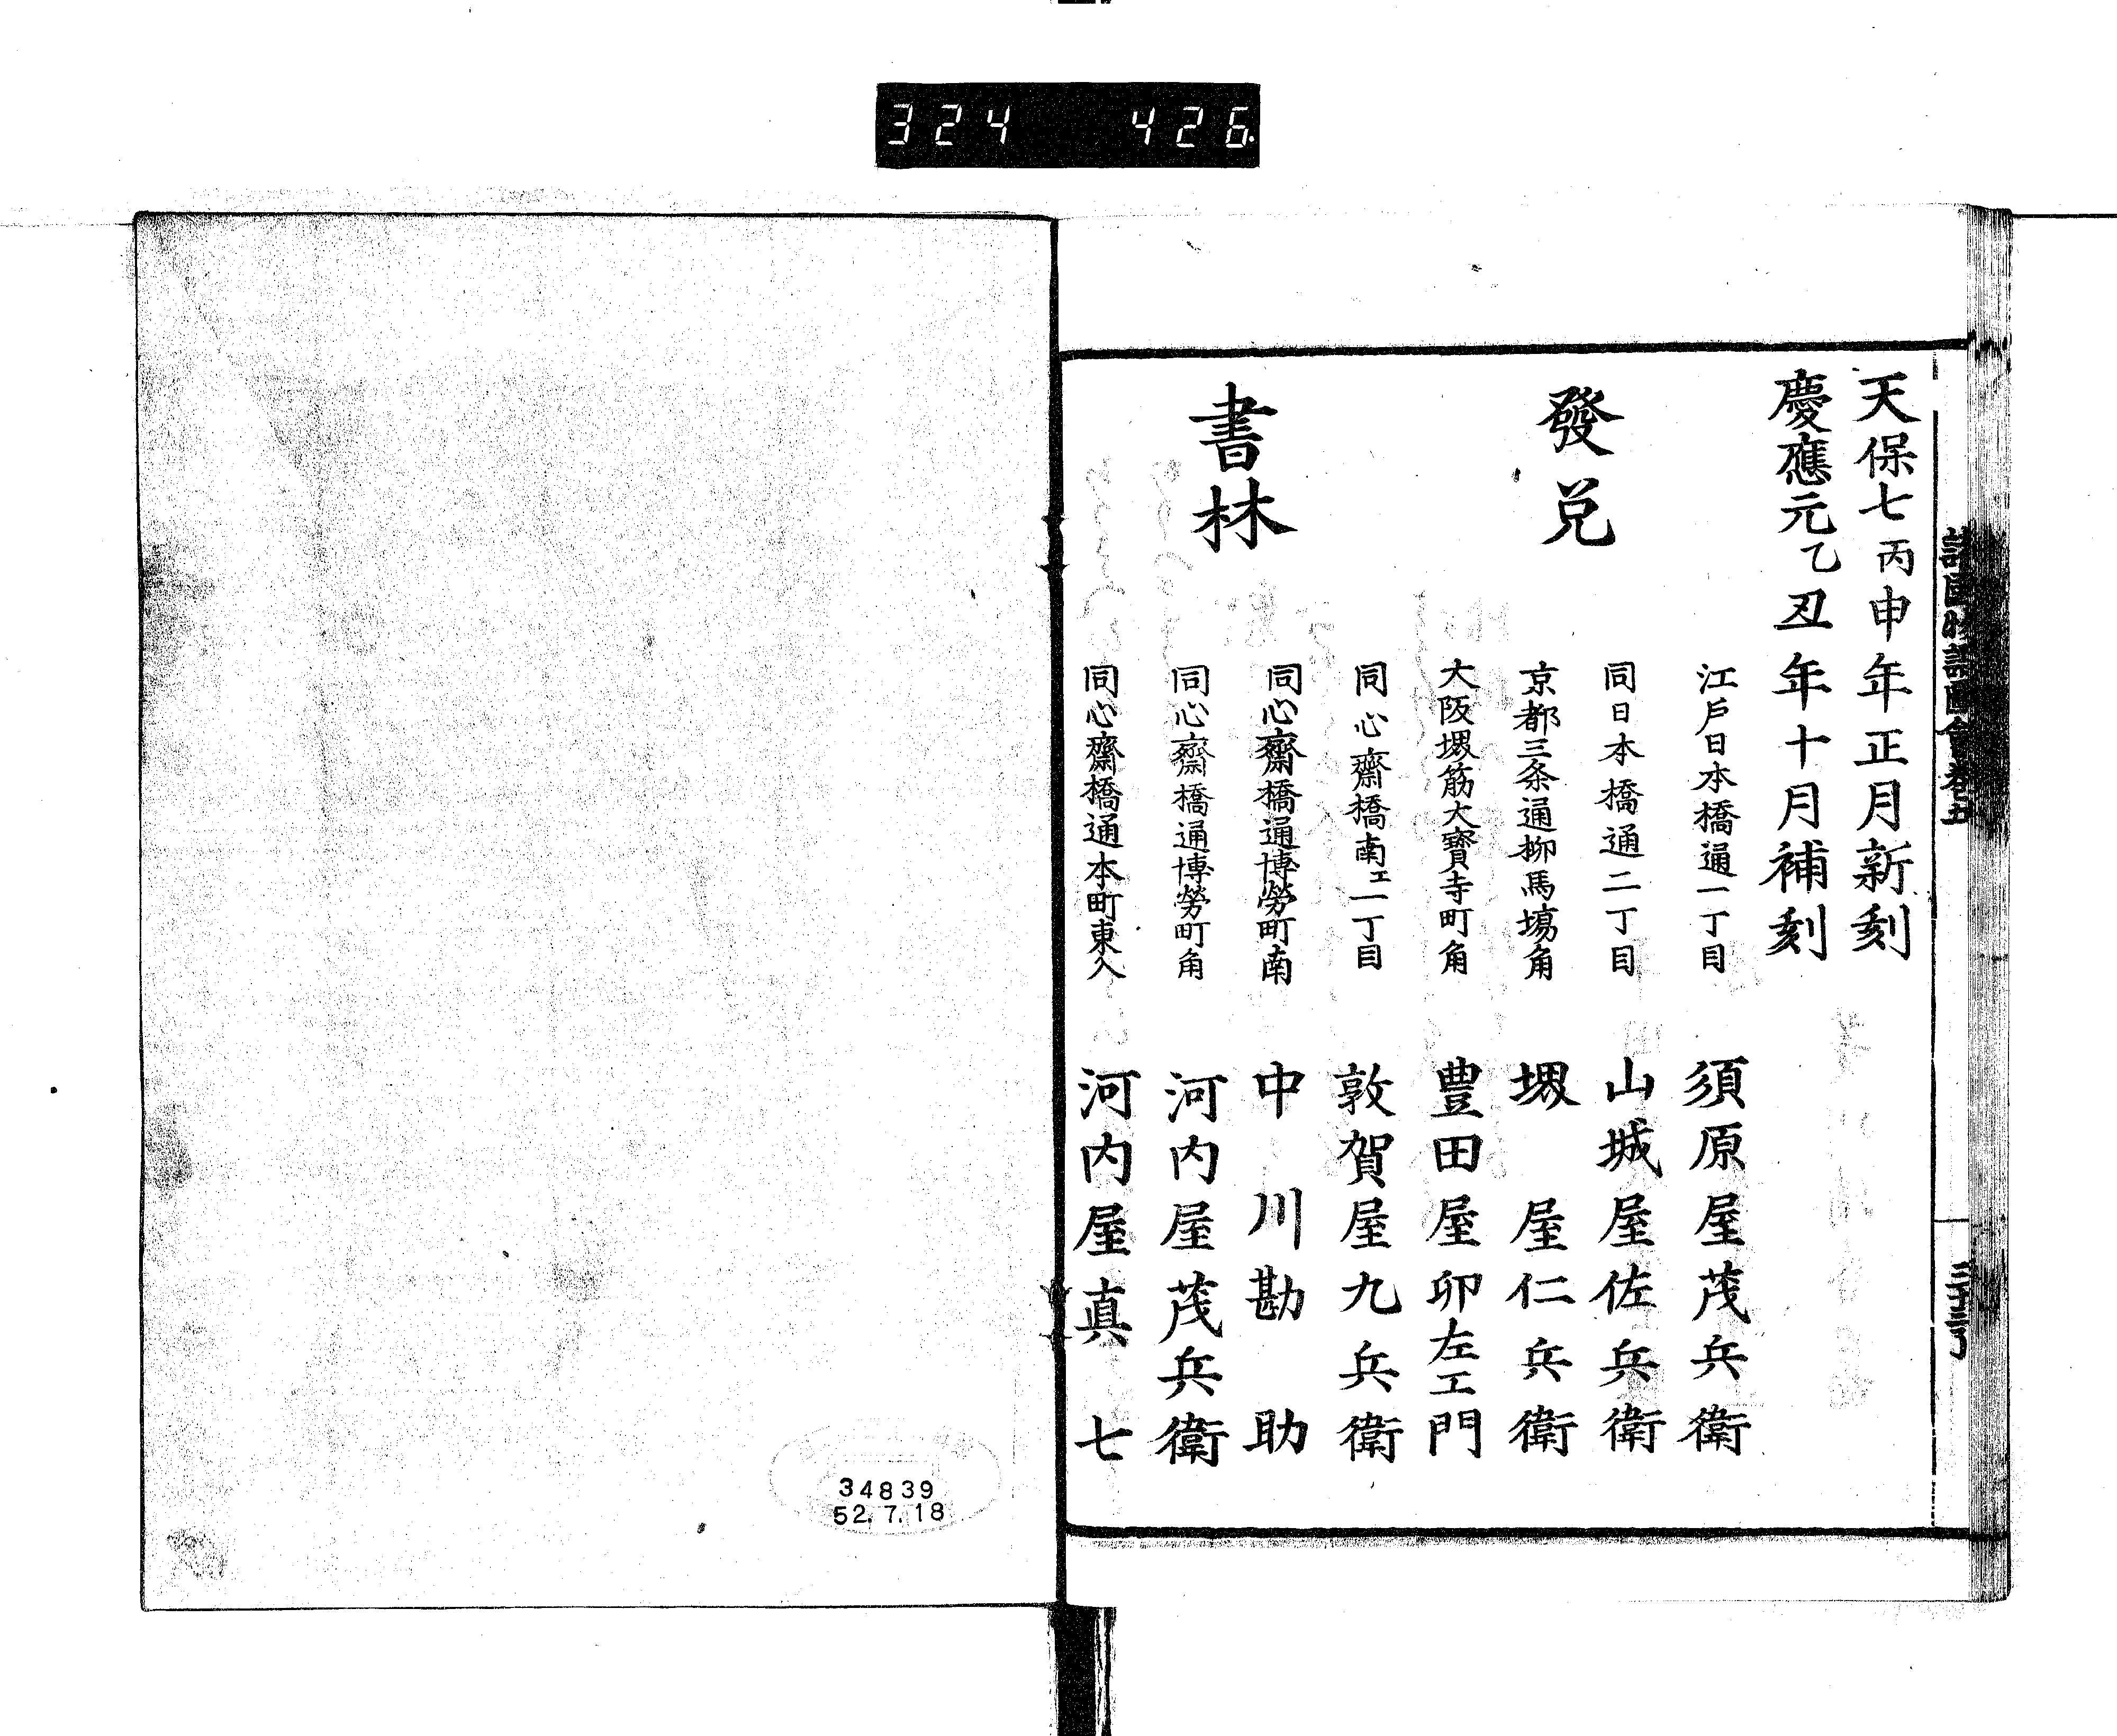 324 426
諸國物語圖會卷五
三十三丁
天保七丙申年正月新刻
慶應元乙丑年十月補刻
發兌
江戶日本橋通一丁目 須原屋茂兵衛
同日本橋通二丁目 山城屋佐兵衛
京都三条通柳馬場角 堺屋仁兵衛
大阪堺筋大寶寺町角 豊田屋卯左エ門
同心齋橋南エ一丁目 敦賀屋九兵衛
書林
同心齋橋通博勞町南 中川勘助
同心齋橋通博勞町角 河内屋茂兵衛
同心齋橋通本町東入 河内屋真七
34839
52.7.18